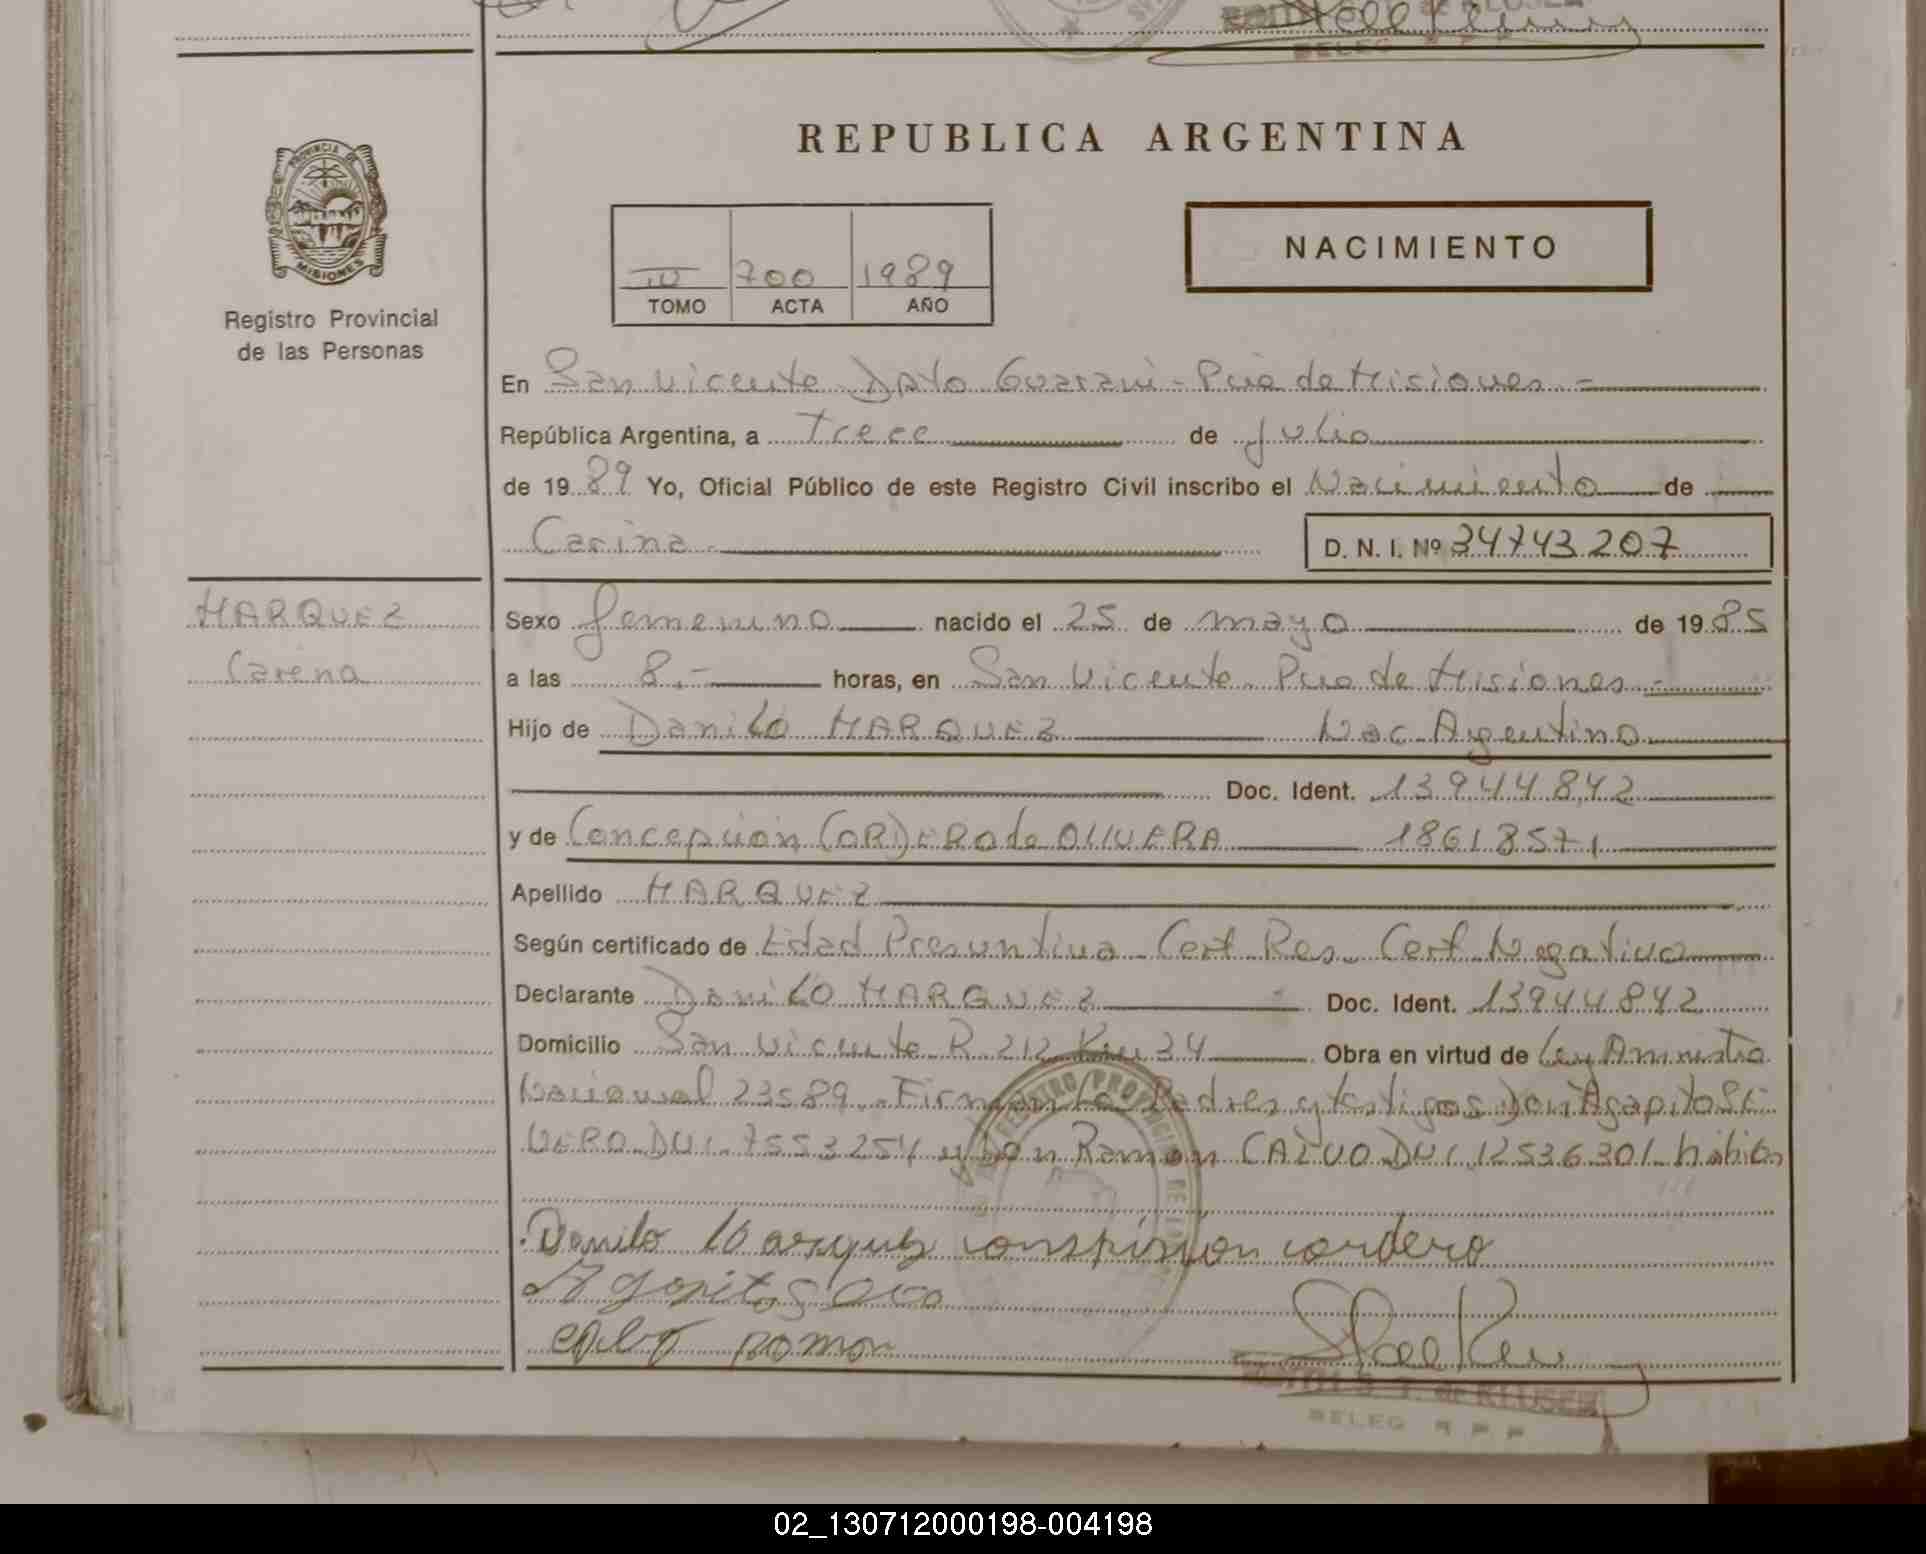 REPUBLICA ARGENTINA
PROVINCIA DE
MISIONES
Registro Provincial
de las Personas
NACIMIENTO
700 1989
TOMO ACTA AÑO
En San Vicente Dpto Guaraní - Pcia de Misiones -
República Argentina, a Trece de Julio
de 1989 Yo, Oficial Público de este Registro Civil inscribo el Nacimiento de
Carina D. N. I. Nº 34743207
MARQUEZ
Carina
Sexo femenino nacido el 25 de mayo de 1985
a las 8.- horas, en San Vicente. Pcia de Misiones -
Hijo de Danilo MARQUEZ Nac. Argentino
Doc. Ident. 13944842
y de Concepción CORDERO de OLIVERA 18618571
Apellido MARQUEZ
Según certificado de Edad Presuntiva - Cert Res. Cert Negativo
Declarante Danilo MARQUEZ Doc. Ident. 13944842
Domicilio San Vicente R. 212 Km 34 Obra en virtud de Ley Aminstia
Nacional 23589 - Firman Lo Padres y testigos Don Agapito
DUI. 7553254 y Don Ramon CALVO DUI. 12536301 habiles
Danilo Marquez conspision cordero
Agapito
calvo ramon
de KLUSER
DELEG R P P
02_130712000198-004198